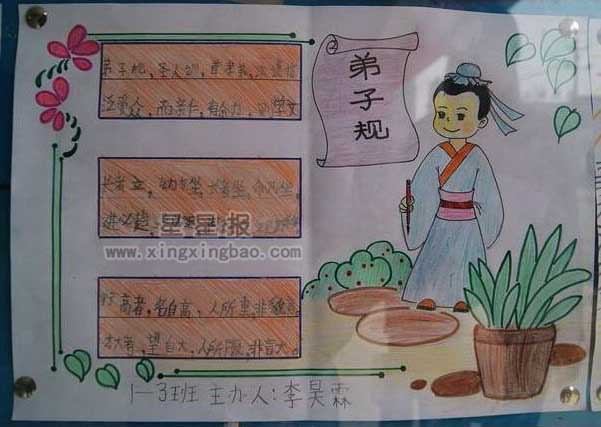 弟子规
弟子规,圣人训,首孝弟,次谨信
泛爱众,而亲仁,有余力,则学文
长者立,幼勿坐,长者坐,命乃坐
进必趋,
星星报
www.xingxingbao.com
行高者,名自高,人所重,非貌高
才大者,望自大,人所服,非言大。
1—3班 主办人:李昊霖